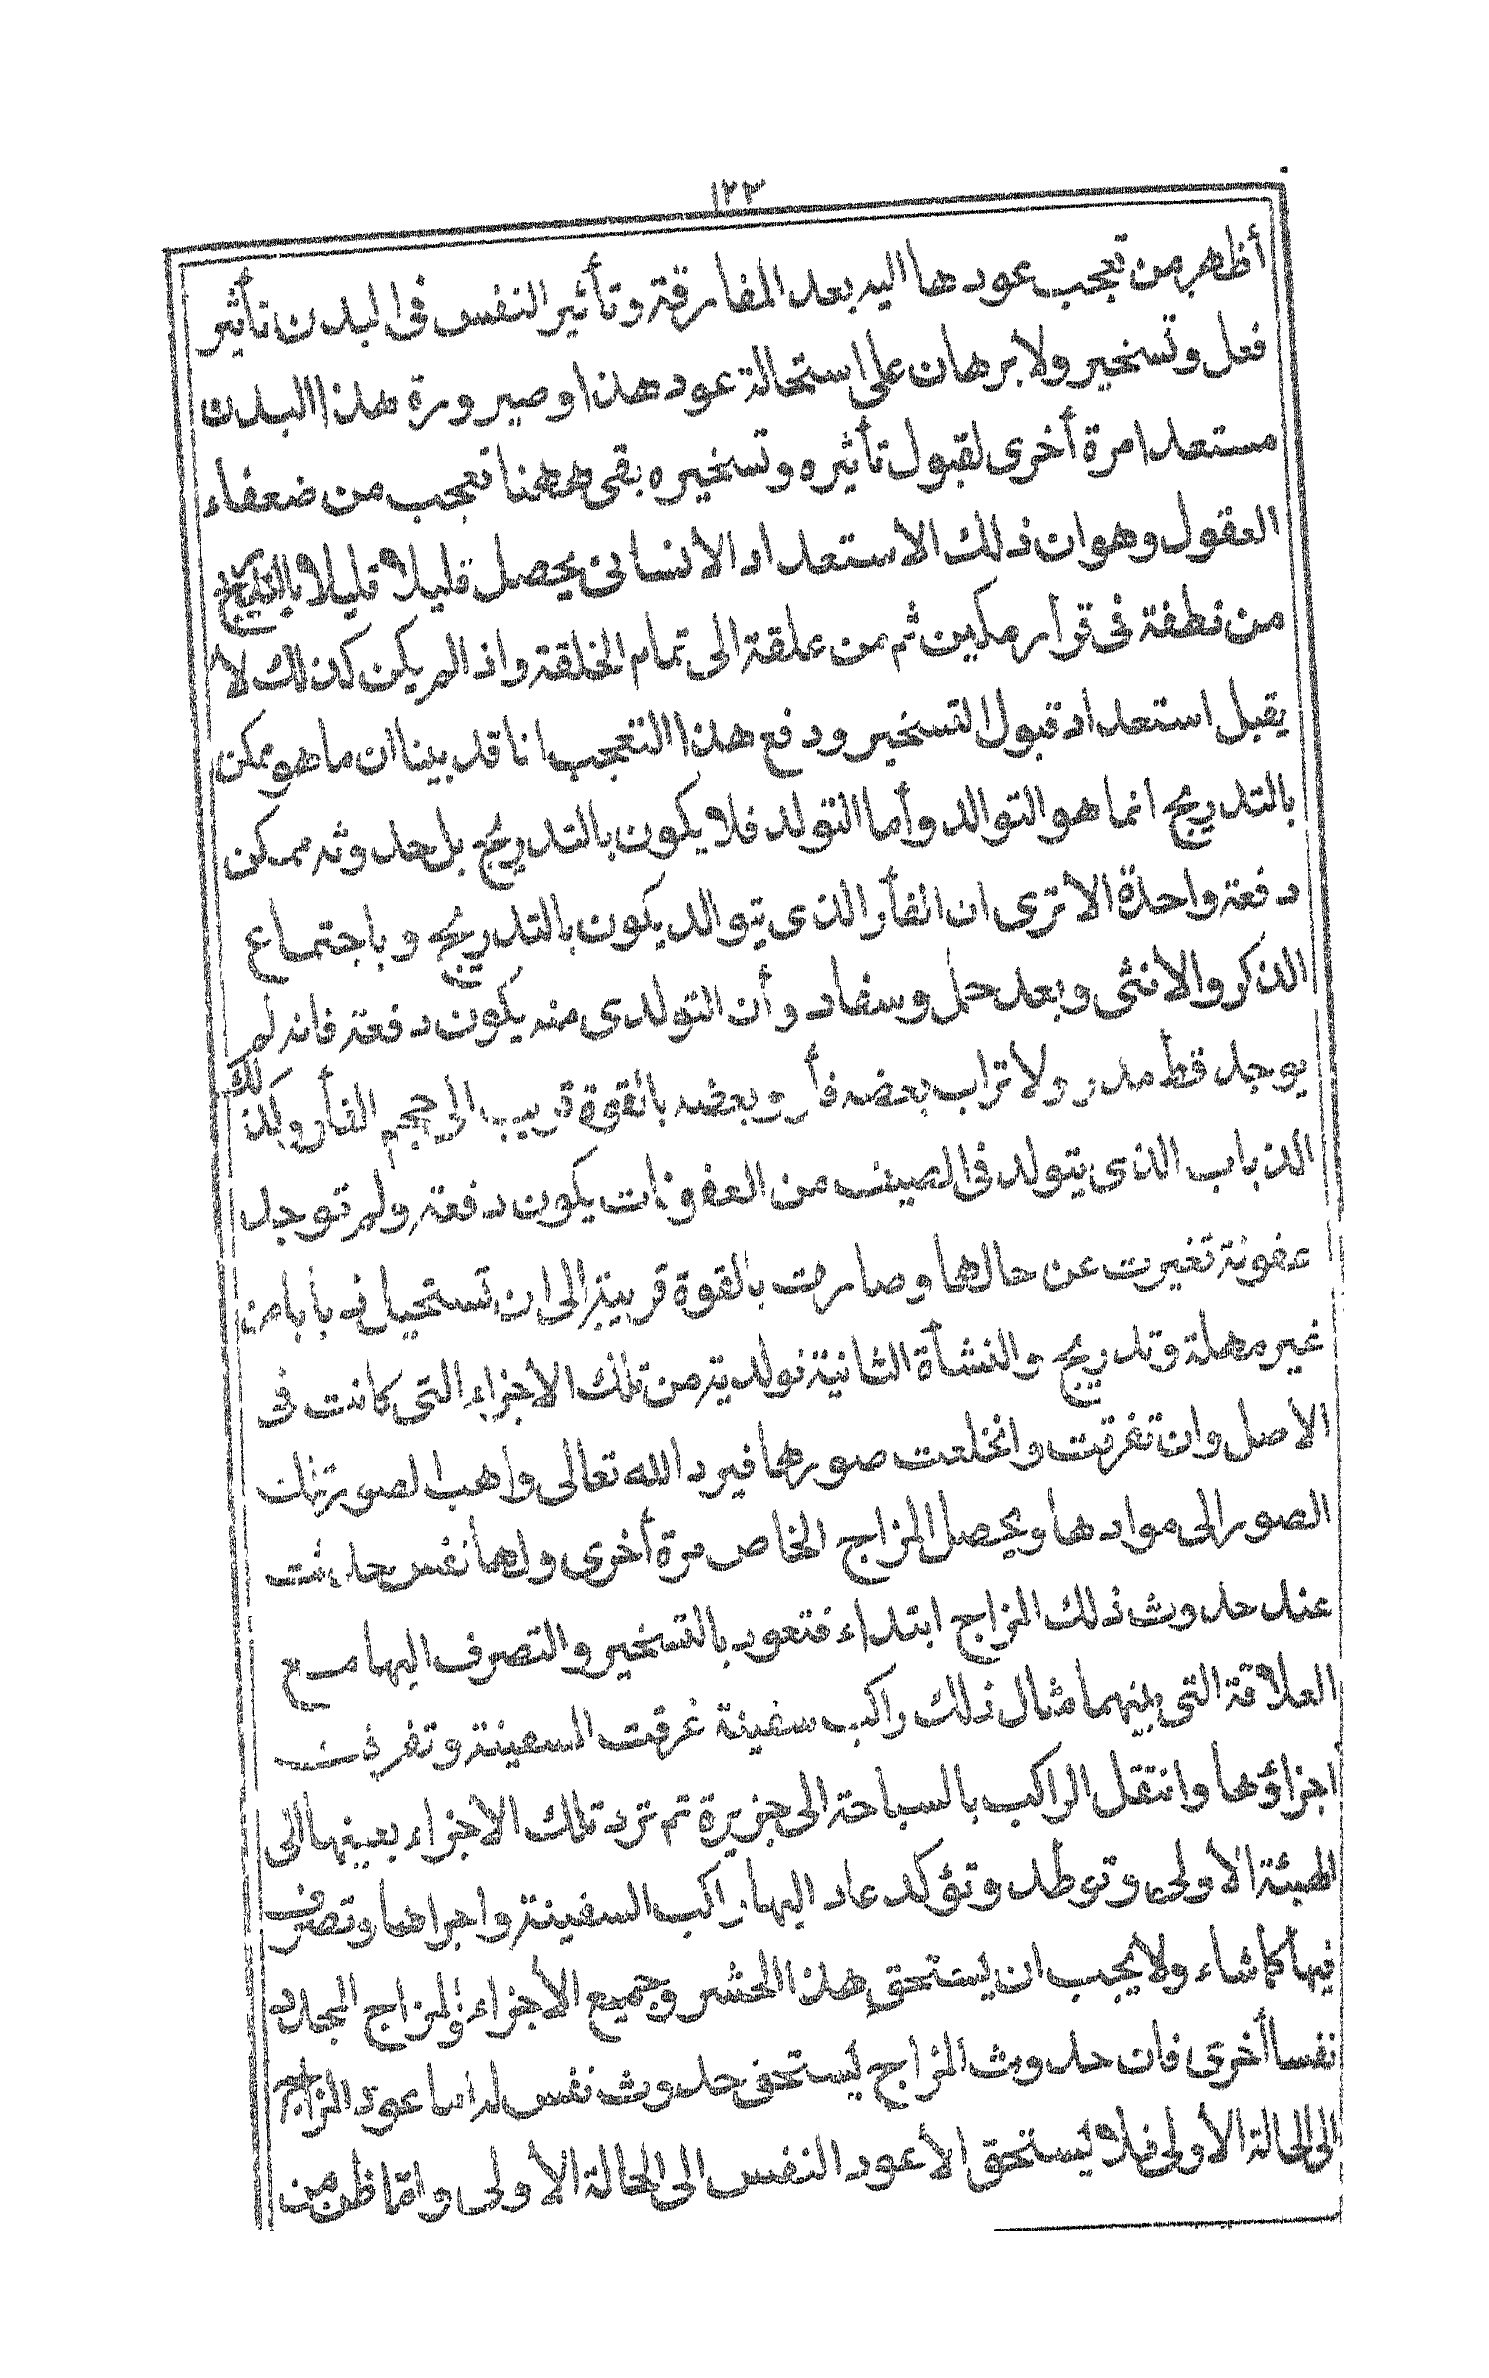 ١٢٣
أظهر من تعجب عودها اليه بعد المفارقة وتأثير النفس فى البدن تأثير
فعل وتسخير ولا برهان على استحالة عود هذا وصيرورة هذا البدن
مستعدا مرة أخرى لقبول تأثيره وتسخيره بقى ههنا تعجب من ضعفاء
العقول وهو ان ذلك الاستعداد الانسانى يحصل قليلا قليلا بالتدريج
من نطفة فى قرار مكين ثم من علقة الى تمام الخلقة واذا لم يكن كذلك لا
يقبل استعداد قبول التسخير ودفع هذا التعجب انا قد بينا ان ما هو ممكن
بالتدريج انما هو التوالد وأما التولد فلا يكون بالتدريج بل حدوثه ممكن
دفعة واحدة الا ترى ان الفأر الذى يتوالد يكون بالتدريج وباجتماع
الذكر والانثى وبعد حمل وسفاد وأن التولدى منه يكون دفعة فانه لم
يوجد قط مدر ولا تراب بعضه فأر وبعضه بالقوة قريب الى حجم الفأر وكذلك
الذباب الذى يتولد فى الصيف من العفونات يكون دفعة ولم توجد
عفونة تغيرت عن حالها وصارت بالقوة قريبة الى ان تستحيل ذبابا من
غير مهلة وتدريج والنشأة الثانية تولدية من تلك الاجزاء التى كانت فى
الاصل وان تفرقت وانخلعت صورها فيرد الله تعالى واهب الصور تلك
الصور الى موادها ويحصل المزاج الخاص مرة أخرى ولها نفس حدثت
عند حدوث ذلك المزاج ابتداء فتعود بالتسخير والتصرف اليها مع
العلاقة التى بينهما مثال ذلك راكب سفينة غرقت السفينة وتفرقت
اجزاؤها وانتقل الراكب بالسباحة الى جزيرة ثم ترد تلك الاجزاء بعينها الى
الهيئة الأولى وتوطد وتؤكد عاد اليها راكب السفينة واجراها وتصرف
فيها كما شاء ولا يجب ان يستحق هذا الحشر وجميع الأجزاء والمزاج المجدد
نفسا أخرى فان حدوث المزاج يستحق حدوث نفس له اما عود المزاج
الى الحالة الأولى فلا يستحق الا عود النفس الى الحالة الأولى وامّا ظن من